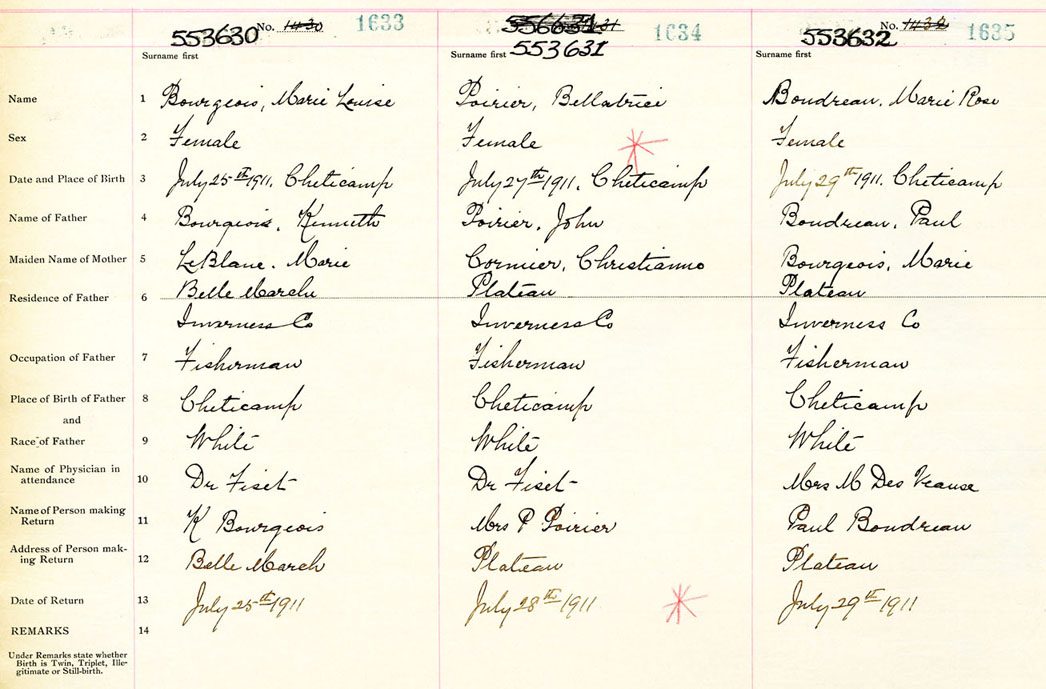 553630 No. 1430 1633 556631 1431 1634 553632 No. 1432 1635
553631
Surname first Surname first Surname first
Name 1 Bourgeois, Marie Louise Poirier, Bellatrice Boudreau, Marie Rose
Sex 2 Female Female Female
Date and Place of Birth 3 July 25th 1911, Cheticamp July 27th 1911, Cheticamp July 29th 1911, Cheticamp
Name of Father 4 Bourgeois, Kenneth Poirier, John Boudreau, Paul
Maiden Name of Mother 5 LeBlanc, Marie Cormier, Christianne Bourgeois, Marie
Residence of Father 6 Belle March Plateau Plateau
Inverness Co Inverness Co Inverness Co
Occupation of Father 7 Fisherman Fisherman Fisherman
Place of Birth of Father 8 Cheticamp Cheticamp Cheticamp
and
Race of Father 9 White White White
Name of Physician in
attendance 10 Dr Fiset Dr Fiset Mrs M Des Veause
Name of Person making
Return 11 K Bourgeois Mrs P Poirier Paul Boudreau
Address of Person mak-
ing Return 12 Belle March Plateau Plateau
Date of Return 13 July 25th 1911 July 28th 1911 July 29th 1911
REMARKS 14
Under Remarks state whether
Birth is Twin, Triplet, Ille-
gitimate or Still-birth.